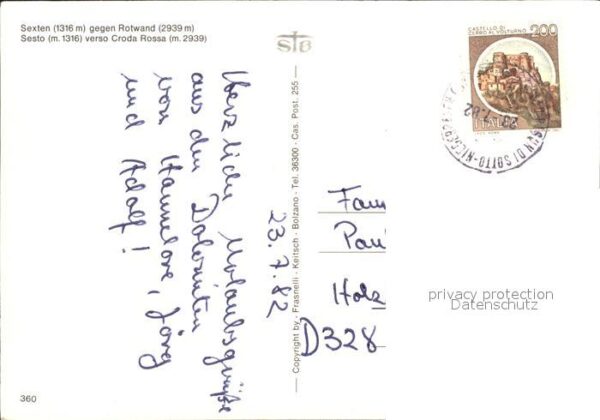 Sexten (1316 m) gegen Rotwand (2939 m)
Sesto (m. 1316) verso Croda Rossa (m. 2939)
STB
CASTELLO DI
CERRO AL VOLTURNO
200
ITALIA
Herzliche Urlaubsgrüße
aus den Dolomiten
von Hannelore, Jörg
und Adolf!
Copyright by - Frasnelli - Keitsch - Bolzano - Tel. 36300 - Cas. Post. 255
23.7.82
Fam
Pau
Holz
D328
privacy protection
Datenschutz
360